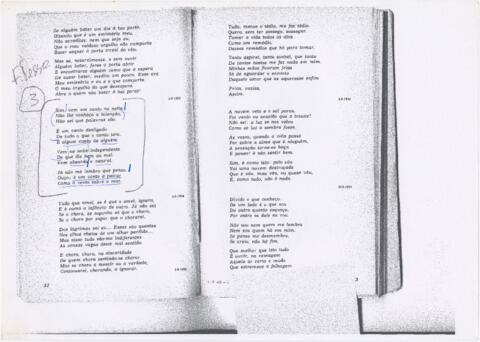 Se alguém bater um dia à tua porta,
Dizendo que é um emissário meu,
Não acredites, nem que seja eu;
Que o meu vaidoso orgulho não comporta
Bater sequer à porta irreal do céu.
Mas se, naturalmente, e sem ouvir
Alguém bater, fores a porta abrir
E encontrares alguém como que à espera
De ousar bater, medita um pouco. Esse era
Meu emissário e eu e o que comporta
O meu orgulho do que desespera.
Abre a quem não bater à tua porta!
3
Vem um canto na noite
Não lhe conheço a intenção,
Não sei que palavras são.
É um canto desligado
De tudo o que o canto tem.
É algum canto de alguém.
Vem na noite independente
De que diz bem ou mal.
Vem absurdo e natural.
Já não me lembro que penso.
Ouço; é um canto a pairar
Como o vento sobre o mar.
Tudo que amei, se é que o amei, ignoro,
E é como a infância de outro. Já não sei
Se o choro, se suponho só que o choro,
Se o choro por supor que o chorarei.
Das lágrimas sei eu... Essas são quentes
Nos olhos cheios de um olhar perdido...
Mas nisso tudo são-me indiferentes
As causas vagas deste mal sentido.
E choro, choro, na sinceridade
De quem chora sentindo-se chorar.
Mas se choro a mentir ou a verdade,
Continuarei, chorando, a ignorar.
32
Tudo, menos o tédio, me faz tédio.
Quero, sem ter sossego, sossegar
Tomar a vida todos os dias
Como um remédio,
Desses remédios que há para tomar.
Tanto aspirei, tanto sonhei, que tanto
De tantos tantos me fez nada em mim.
Minhas mãos ficaram frias
Só de aguardar o encanto
Daquele amor que as aquecesse enfim.
Frias, vazias,
Assim.
A nuvem veio e o sol parou.
Foi vento ou ocasião que a trouxe?
Não sei: a luz se nos velou
Como se luz a sombra fosse.
Às vezes, quando a vida passa
Por sobre a alma que é ninguém,
A sensação torna-se baça
E pensar é não sentir bem.
Sim, é como isto: pelo céu
Vai uma nuvem destroçada
Que é véu, meu véu, ou quase véu,
E, como tudo, não é nada.
Divido o que conheço.
De um lado é o que sou
Do outro quanto esqueço.
Por entre os dois eu vou.
Não sou nem quem me lembro
Nem sou quem há em mim.
Se penso me desmembro.
Se creio, não há fim.
Que melhor que isto tudo
É ouvir, na ramagem
Aquele ar certo e mudo
Que estremece a folhagem